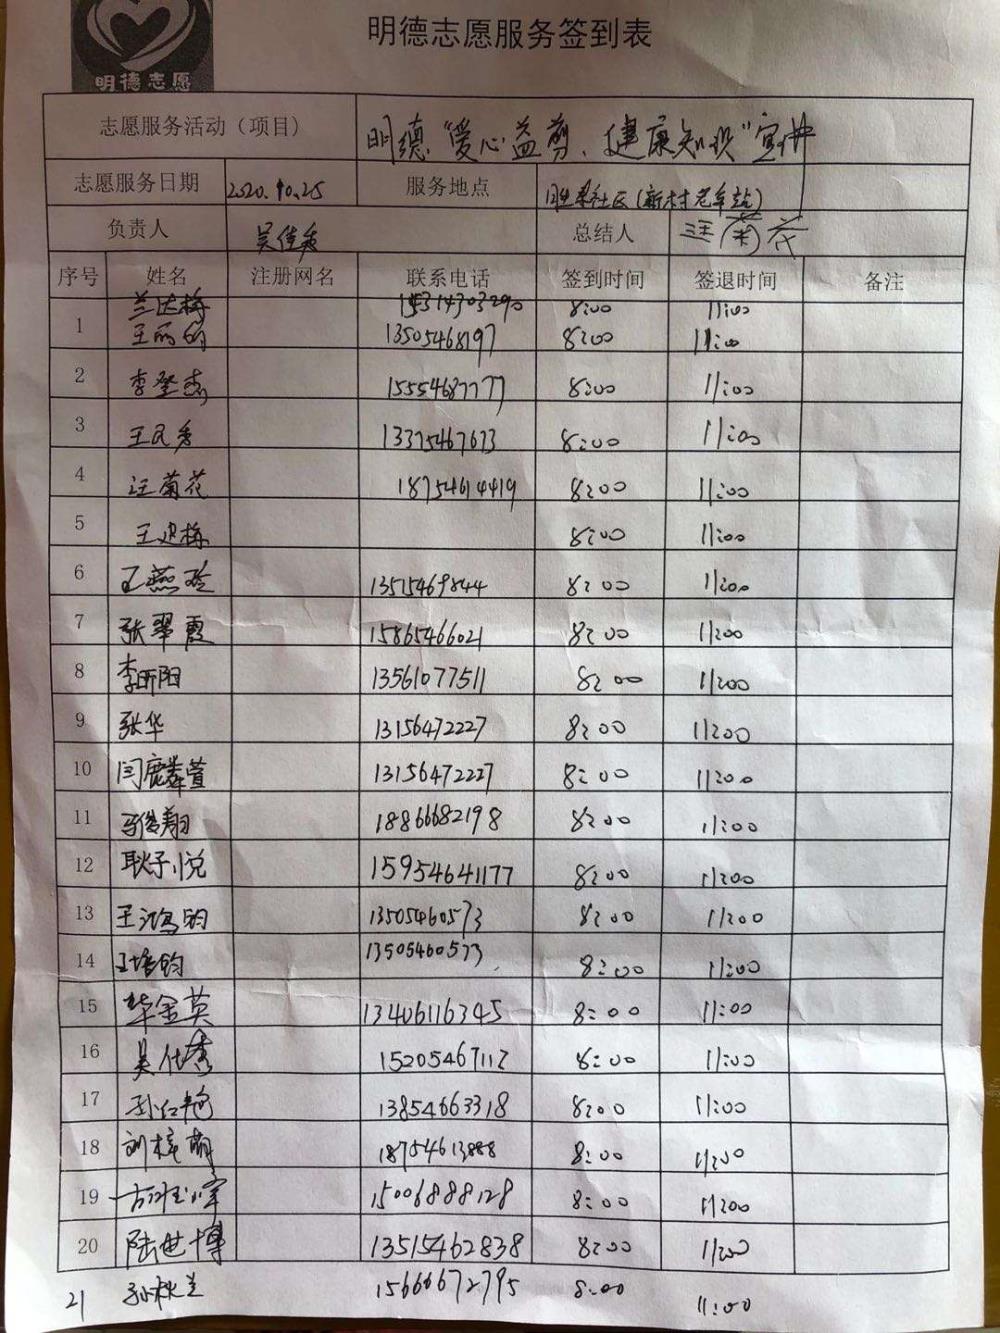 明德志愿服务签到表
明德志愿
志愿服务活动（项目） 明德“爱心益剪、健康知识”宣讲
志愿服务日期 2020.10.25 服务地点 胜泰社区(新村老车站)
负责人 吴佳秀 总结人 汪菊花
序号 姓名 注册网名 联系电话 签到时间 签退时间 备注
兰达梅 15314303290 8:00 11:00
1 王丽的 13505468197 8:00 11:00
2 李登杰 15554687777 8:00 11:00
3 王民秀 13375467673 8:00 11:00
4 汪菊花 18754614419 8:00 11:00
5 王迎梅 8:00 11:00
6 王燕玲 13515469844 8:00 11:00
7 张翠霞 15865466021 8:00 11:00
8 李昕阳 13561077511 8:00 11:00
9 张华 13156472227 8:00 11:00
10 闫麟萱 13156472227 8:00 11:00
11 18866682198 8:00 11:00
12 耿子悦 15954641177 8:00 11:00
13 王鸿钧 13505460573 8:00 11:00
14 王培钧 13505460573 8:00 11:00
15 华金英 13406116345 8:00 11:00
16 吴佳秀 15205467112 8:00 11:00
17 孙仁艳 13854663318 8:00 11:00
18 刘梓萌 18754613888 8:00 11:00
19 15006888128 8:00 11:00
20 陆世博 13515462838 8:00 11:00
21 孙秋兰 15666672795 8:00 11:00